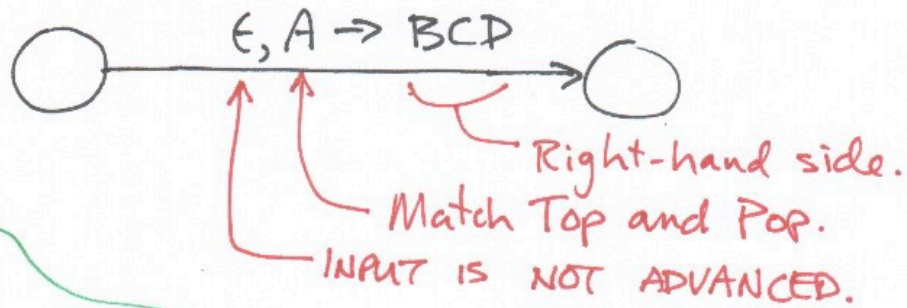 ϵ, A → BCD
Right-hand side.
Match Top and Pop.
INPUT IS NOT ADVANCED.